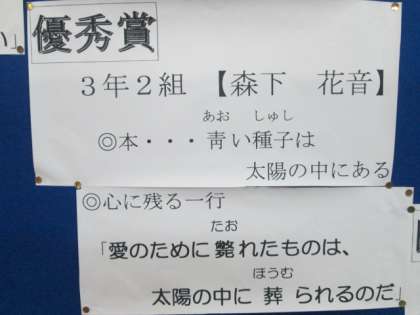 い」
優秀賞
3年2組 【森下 花音】
あお しゅし
◎本・・・青い種子は
太陽の中にある
◎心に残る一行
たお
「愛のために斃れたものは、
ほうむ
太陽の中に葬られるのだ」